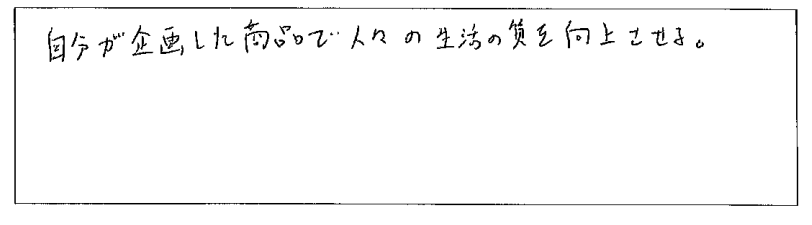 自分が企画した商品で人々の生活の質を向上させる。